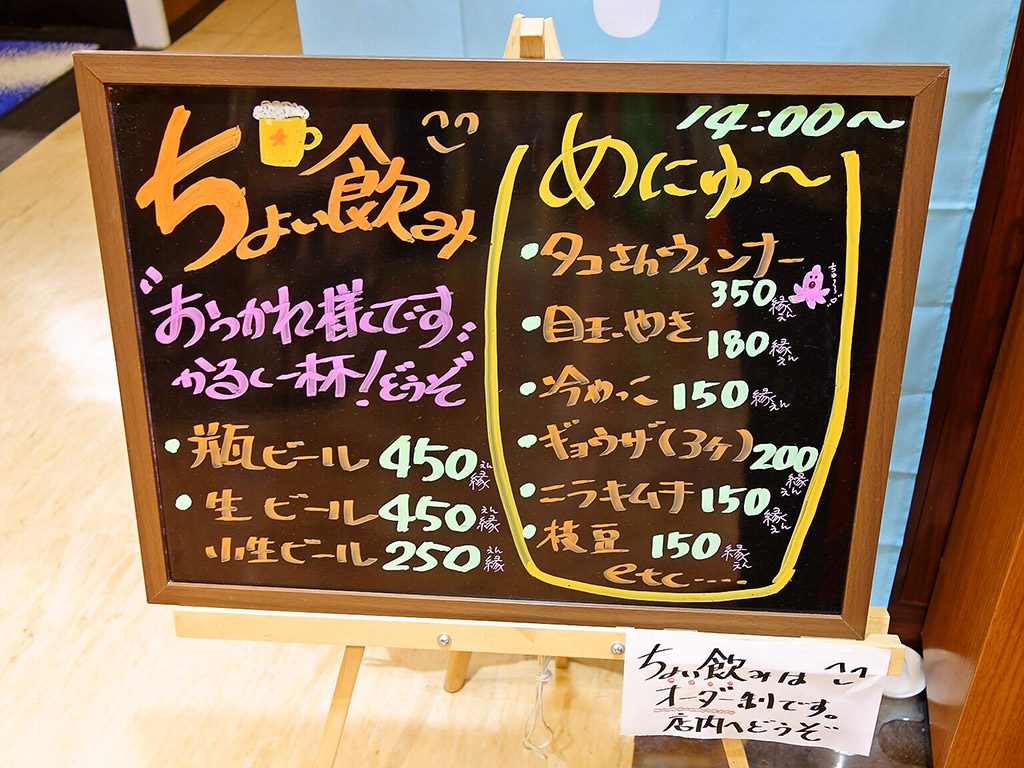 ちょい飲み
"おつかれ様でです"
かる〜く一杯!どうぞ
・瓶ビール 450縁えん
・生ビール 450縁えん
小生ビール 250縁えん
14:00〜
めにゅ〜
・タコさんウィンナー
350縁えん
ちゅ〜
・目玉やき 180縁えん
・冷やっこ 150縁えん
・ギョウザ(3ヶ) 200縁えん
・ニラキムチ 150縁えん
・枝豆 150縁えん
etc....
ちょい飲みは
オーダー制です。
店内へどうぞ